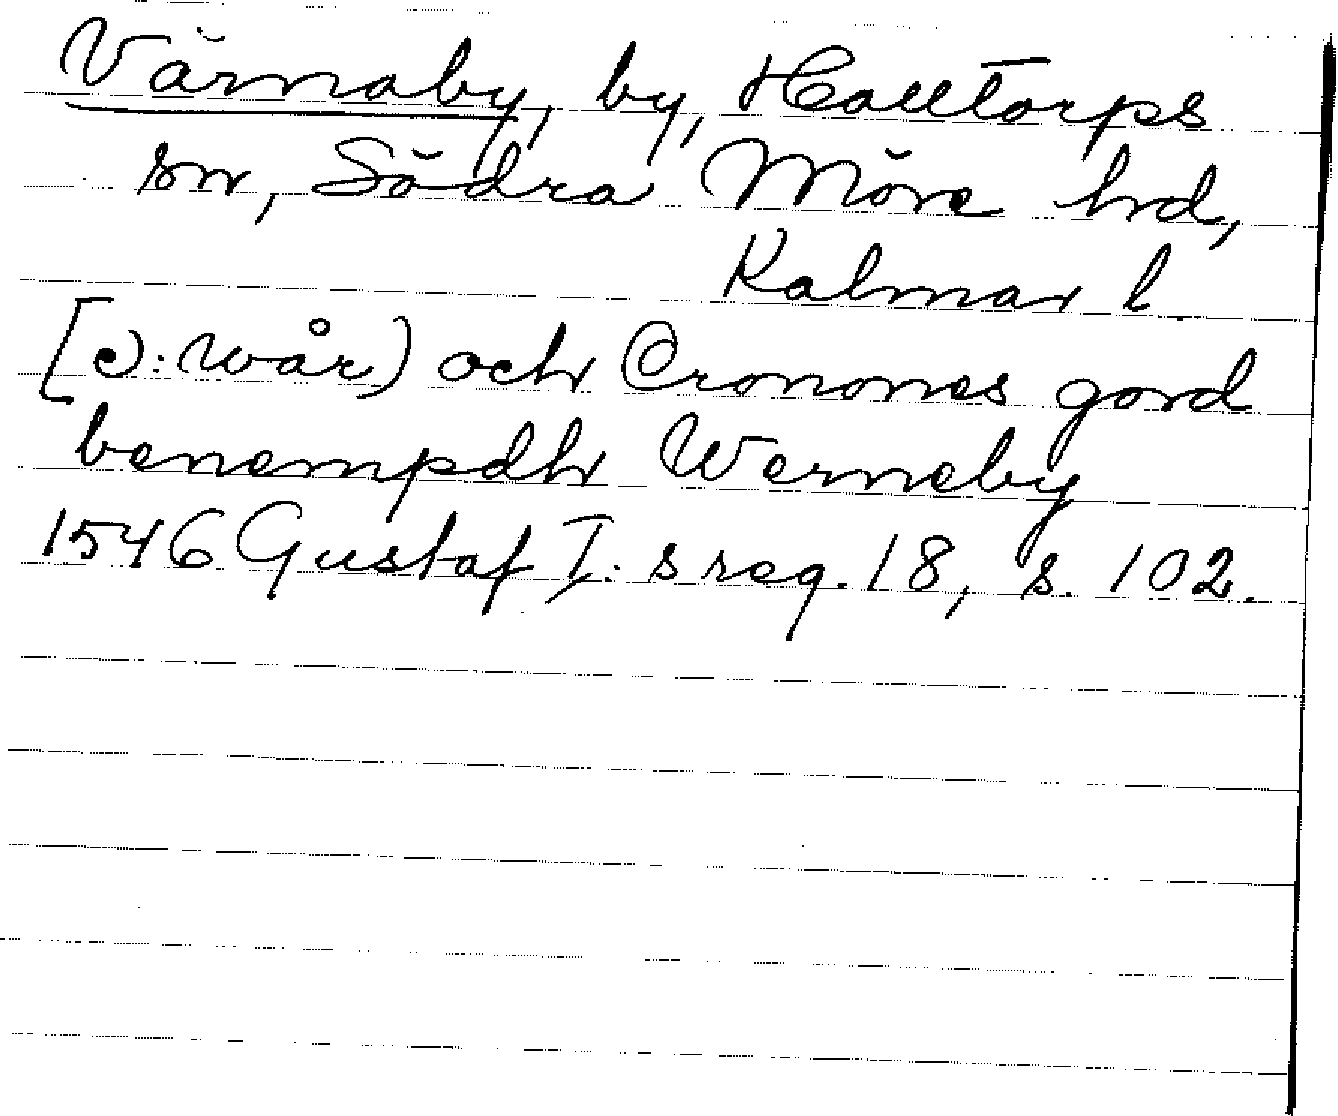 Värnaby, by, Halltorps
sn, Södra Möre hd,
Kalmar l.
[ɔ: wår) och Cronones gord
benempdh Werneby
1546 Gustaf I:s reg. 18, s. 102.